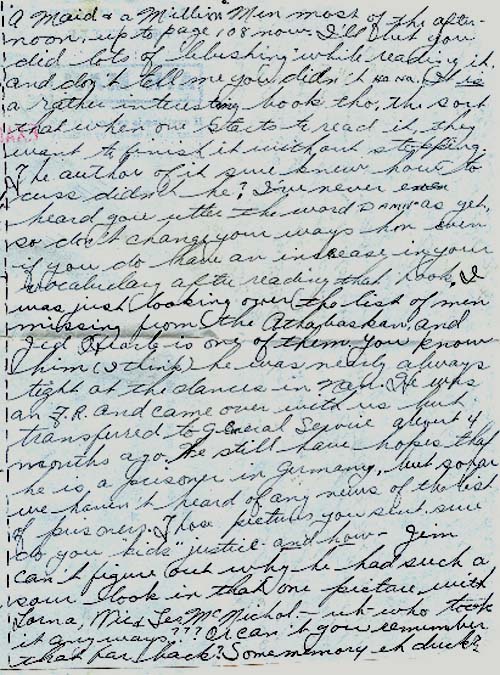 A Maid & a Million Men most of the after-
noon, up to page 108 now. I'll bet you
did lots of blushing while reading it,
and don't tell me you didn't HA HA. It is
a rather interesting book tho, the sort
that when one starts to read it they
want to finish it without stopping.
The author of it sure knew how to
cuss didn't he? I've never even
heard you utter the word DAMN as yet,
so don't change your ways hon even
if you do have an increase in your
vocabulary after reading that book. I
was just looking over the list of men
missing from the Athabaskan, and
is one of them, you know
him (I think) he was nearly always
tight at the dances in He was
an F.R. and came over with us but
transferred to General Service about 4
months ago. We still have hopes that
he is a prisoner in Germany, but so far
we haven't heard of any news of the list
of prisoners. Those pictures you sent sure
do you kids justice and how - Jim
can't figure out why he had such a
sour look in that one picture with
Lorna, Les McNichol - who took
it anyways??? Or can't you remember
that far back? Some memory eh duck?